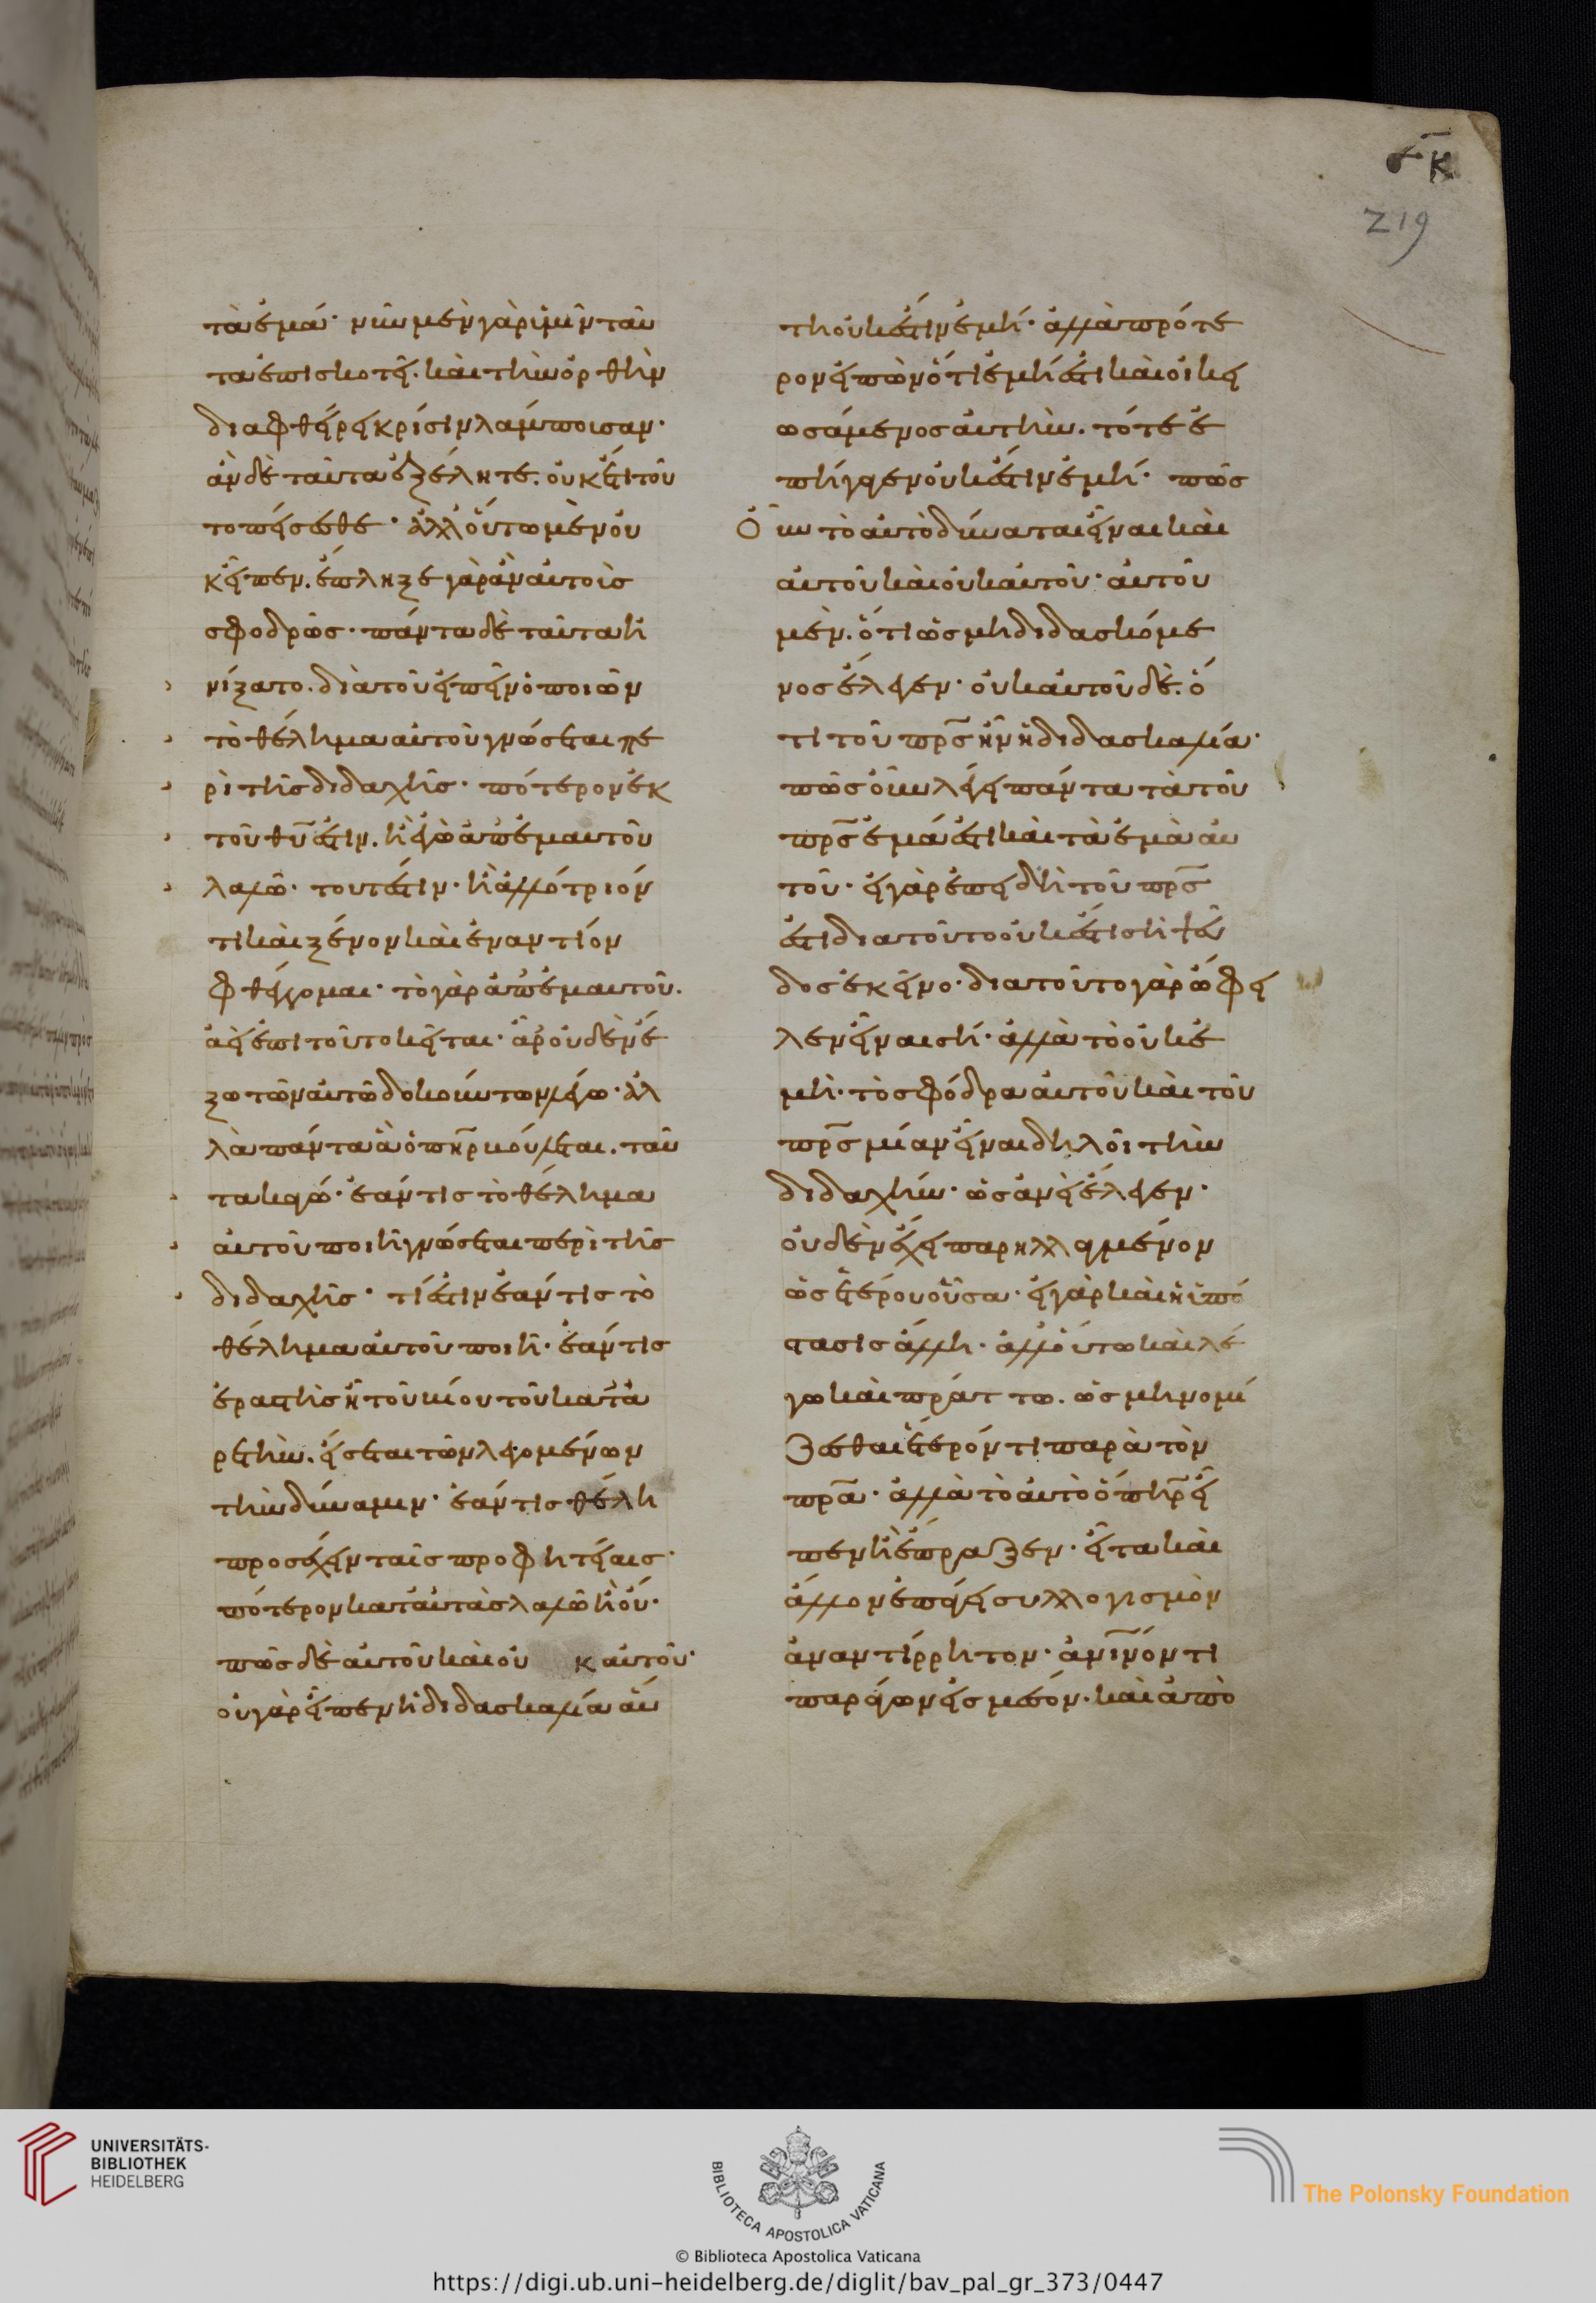 σ̅κ̅
219
τὰ ἐμά· νῦν μὲν γὰρ ὑμῖν ταῦ
τα ἐπισκοτεῖ. καὶ τὴν ὀρθὴν
διαφθείρει κρίσιν λαμποῦσαν·
ἂν δὲ ταῦτα ἐξέλητε. οὐκέτι τοῦ
το πείσεσθε· ἀλλ' οὕτω μὲν οὐ
κ εἶπεν. ἔπληξε γὰρ ἂν αὐτοὺς
σφοδρῶς· πάντα δὲ ταῦτα ἠ
νίξατο. διὰ τοῦ εἰπεῖν ὁ ποιῶν
τὸ θέλημα αὐτοῦ γνώσεται πε
ρὶ τῆς διδαχῆς· πότερον ἐκ
τοῦ θυ̅ ἐστιν. ἢ ἐγὼ ἀπ' ἐμαυτοῦ
λαλῶ· τουτέστιν· ἢ ἀλλότριόν
τι καὶ ξένον καὶ ἐναντίον
φθέγγομαι· τὸ γὰρ ἀπ' ἐμαυτοῦ.
ἀεὶ ἐπὶ τοῦτο κεῖται· ἄρ' οὐδὲν ἔ
ξω τῶν αὐτῶ δοκούντων λέγω· ἀλ
λὰ πάντα ἃ ὁ πη̅ρ κούλεται. ταῦ
τα κἀγώ· ἐάν τις τὸ θέλημα
αὐτοῦ ποιῇ γνώσεται περὶ τῆς
διδαχῆς· τί ἐστιν ἐάν τις τὸ
θέλημα αὐτοῦ ποιῇ· ἐάν τις
ἐραστὴς ἦ τοῦ κίου τοῦ κατ' ἀ
ρετήν. εἴσεται τῶν λεγομένων
τὴν δύναμιν· ἐάν τις θέλη
προσέχειν ταῖς προφητείαις·
πότερον κατ' αὐτὰς λαλῶ ἢ οὔ·
πῶς δὲ αὐτοῦ καὶ οὐ κ αὐτοῦ·
οὐ γὰρ εἶπεν ἡ διδασκαλία αὕ
τη οὐκ ἔστιν ἐμή· ἀλλὰ πρότε
ρον εἰπὼν ὅτι ἐμή ἐστι καὶ οἰκει
ωσάμενος αὐτήν. τότε ἐ
πήγαγεν οὐκ ἔστιν ἐμή· πῶς
οὖν τὸ αὐτὸ δύναται εἶναι καὶ
αὐτοῦ καὶ οὐκ αὐτοῦ· αὐτοῦ
μὲν. ὅτι ὡς μὴ διδασκόμε
νος ἔλεγεν· οὐκ αὐτοῦ δὲ. ὅ
τι τοῦ πρ̅ς ἦν ἡ διδασκαλία·
πῶς οὖν λέγει πάντα τὰ τοῦ
πρ̅ς ἐμά ἐστι καὶ τὰ ἐμὰ αὐ
τοῦ· εἰ γὰρ ἐπειδὴ τοῦ πρ̅ς
ἐστι διὰ τοῦτο οὐκ ἔστι σὴ ψεῦ
δος ἐκεῖνο· διὰ τοῦτο γὰρ ὤφει
λεν εἶναι σή· ἀλλὰ τὸ οὐκ ἐ
μὴ· τὸ σφόδρα αὐτοῦ καὶ τοῦ
πρ̅ς μίαν εἶναι δηλοῖ τὴν
διδαχήν· ὡσανεὶ ἔλεγεν·
οὐδὲν ἔχει παρηλλαγμένον
ὡς ἑτέρου οὖσα· εἰ γὰρ καὶ ἡ ὑπό
στασις ἄλλη· ἀλλ' οὕτω καὶ λέ
γω καὶ πράττω. ὡς μὴ νομί
ζεσθαι ἕτερόν τι παρὰ τὸν
πρ̅α· ἀλλὰ τὸ αὐτὸ ὅπερ ὁ πη̅ρ εἶ
πεν ἢ ἔπραξεν· εἶτα καὶ
ἄλλον ἐπάγει συλλογισμὸν
ἀναντίρρητον· ἀνι̅νόν τι
παράγων εἰς μέσον. καὶ ἀπὸ
UNIVERSITÄTS-
BIBLIOTHEK
HEIDELBERG
BIBLIOTECA APOSTOLICA VATICANA
The Polonsky Foundation
© Biblioteca Apostolica Vaticana
https://digi.ub.uni-heidelberg.de/diglit/bav_pal_gr_373/0447